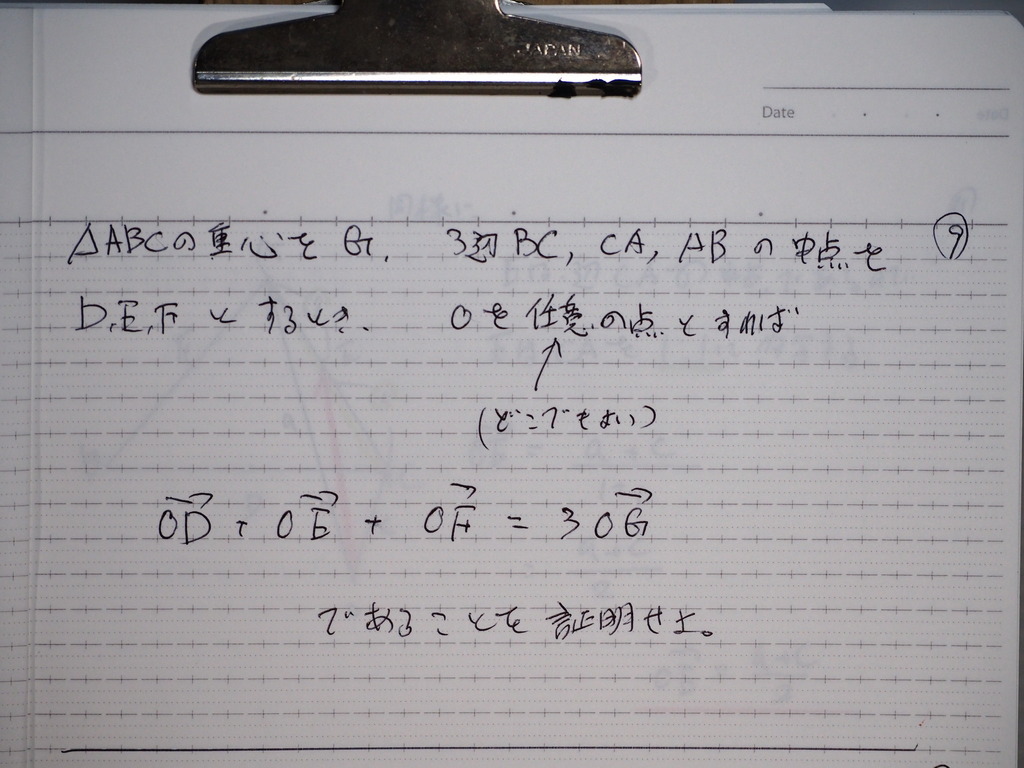 JAPAN
Date
△ABCの重心をG, 3辺BC, CA, ABの中点を ⑨
D,E,Fとするとき、 Oを任意の点とすれば
(どこでもよい)
OD + OE + OF = 3OG
であることを証明せよ。